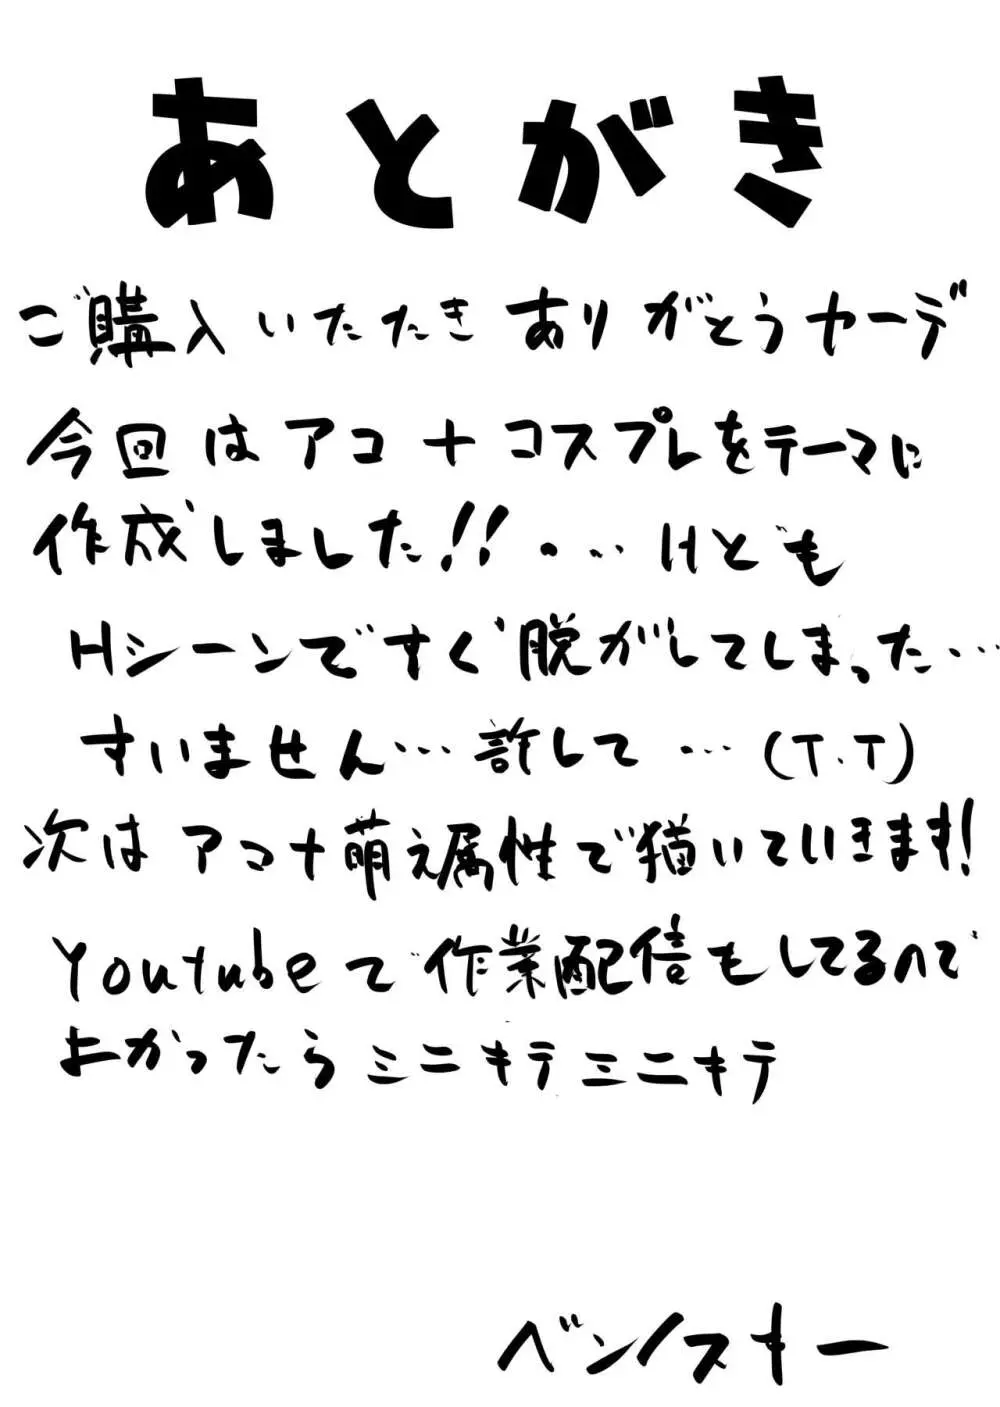 あとがき
ご購入いただき ありがとうヤーデ
今回は アコ + コスプレをテーマに
作成しました!! ・・・ Hども
Hシーンですぐ脱がしてしまった…
すいません… 許して … (T.T)
次は アコ+萌え属性で描いていきます!
Youtubeで 作業配信もしてるので
よかったら ミニキテミニキテ
ベンノスキー